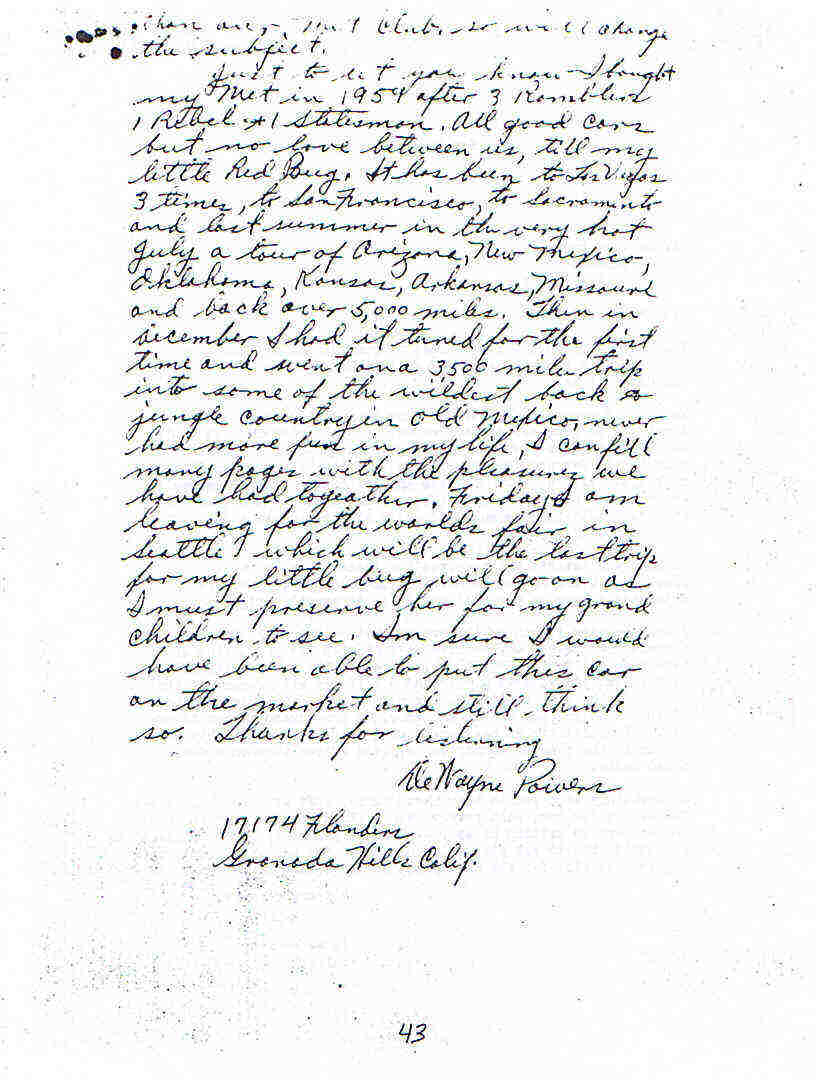 than our Met Club. so will change
the subject.
Just to let you know - I bought
my Met in 1954 after 3 Ramblers
1 Rebel + 1 Statesman. All good cars
but no love between us, till my
little Red Bug. It has been to Las Vegas
3 times, to San Francisco, to Sacramento
and last summer in the very hot
July a tour of Arizona, New Mexico,
Oklahoma, Kansas, Arkansas, Missouri
and back over 5,000 miles. Then in
December I had it tuned for the first
time and went on a 3500 mile trip
into some of the wildest back
jungle country in Old Mexico, never
had more fun in my life, I can fill
many pages with the pleasures we
have had togeather. Friday I am
leaving for the worlds fair in
Seattle which will be the last trip
for my little bug will go on as
I must preserve her for my grand
children to see. Im sure I would
have been able to put this car
on the market and still think
so. Thanks for listening
DeWayne Powers
17174 Flanders
Granada Hills Calif.
43